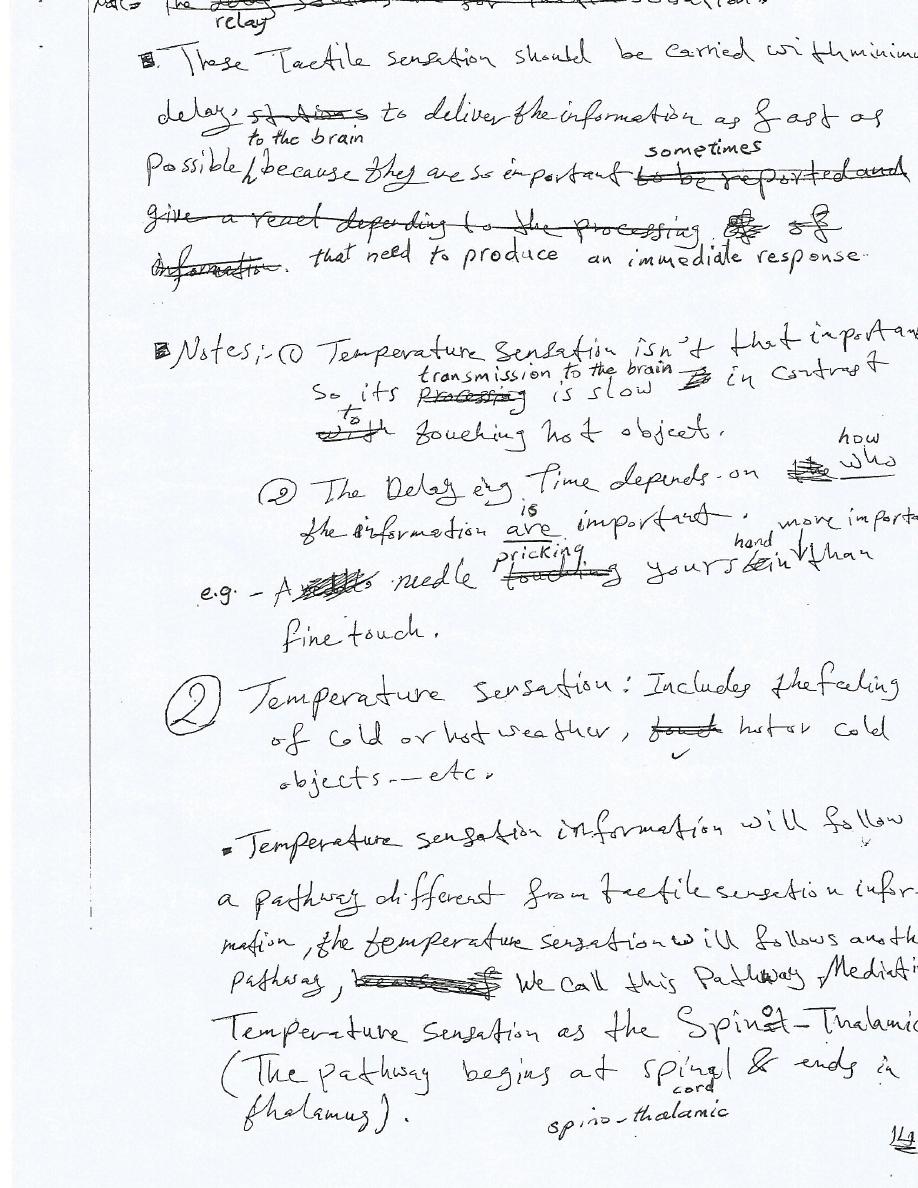 Note The relay
. These Tactile sensation should be carried with minim
delay, stations to deliver the information as fast as
to the brain
possible, because they are so important sometimes to be reported and
give a react depending to the processing of
information. that need to produce an immediate response.
Notes:- ① Temperature Sensation isn't that importan
transmission to the brain
so its processing is slow in contrast
to
with touching hot object.
how
② The Delaying Time depends on the who
is
the information are important. more importa
pricking hand
e.g. - A needle touching yourskin than
fine touch.
② Temperature sensation: Includes the feeling
of cold or hot weather, touch hot or cold
objects --- etc.
. Temperature sensation information will follow
a pathway different from tactile sensation infor-
mation, the temperature sensation will follows anoth
pathway, because of We call this Pathway, Mediati
Temperature sensation as the Spino-Thalamic
(The pathway begins at spinal & ends in
cord
thalamus).
spino-thalamic
14